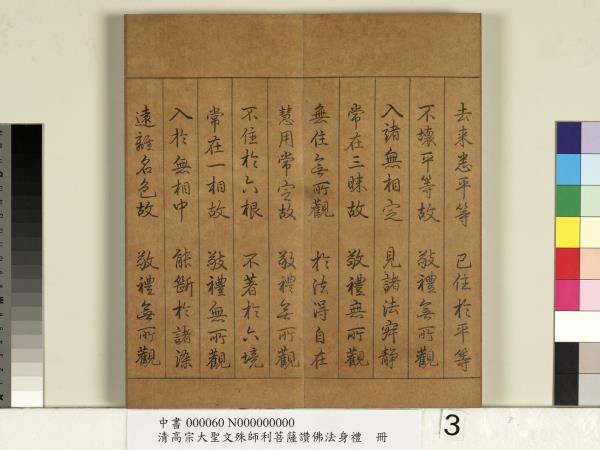 去来悉平等　已住於平等
不壞平等故　敬禮無所觀
入諸無相定　見諸法寂静
常在三昧故　敬禮無所觀
無住無所觀　於法得自在
慧用常定故　敬禮無所觀
不住於六根　不著於六境
常在一相故　敬禮無所觀
入於無相中　能斷於諸染
遠離名色故　敬禮無所觀
中書 000060 N000000000
清高宗大聖文殊師利菩薩讚佛法身禮　冊
3